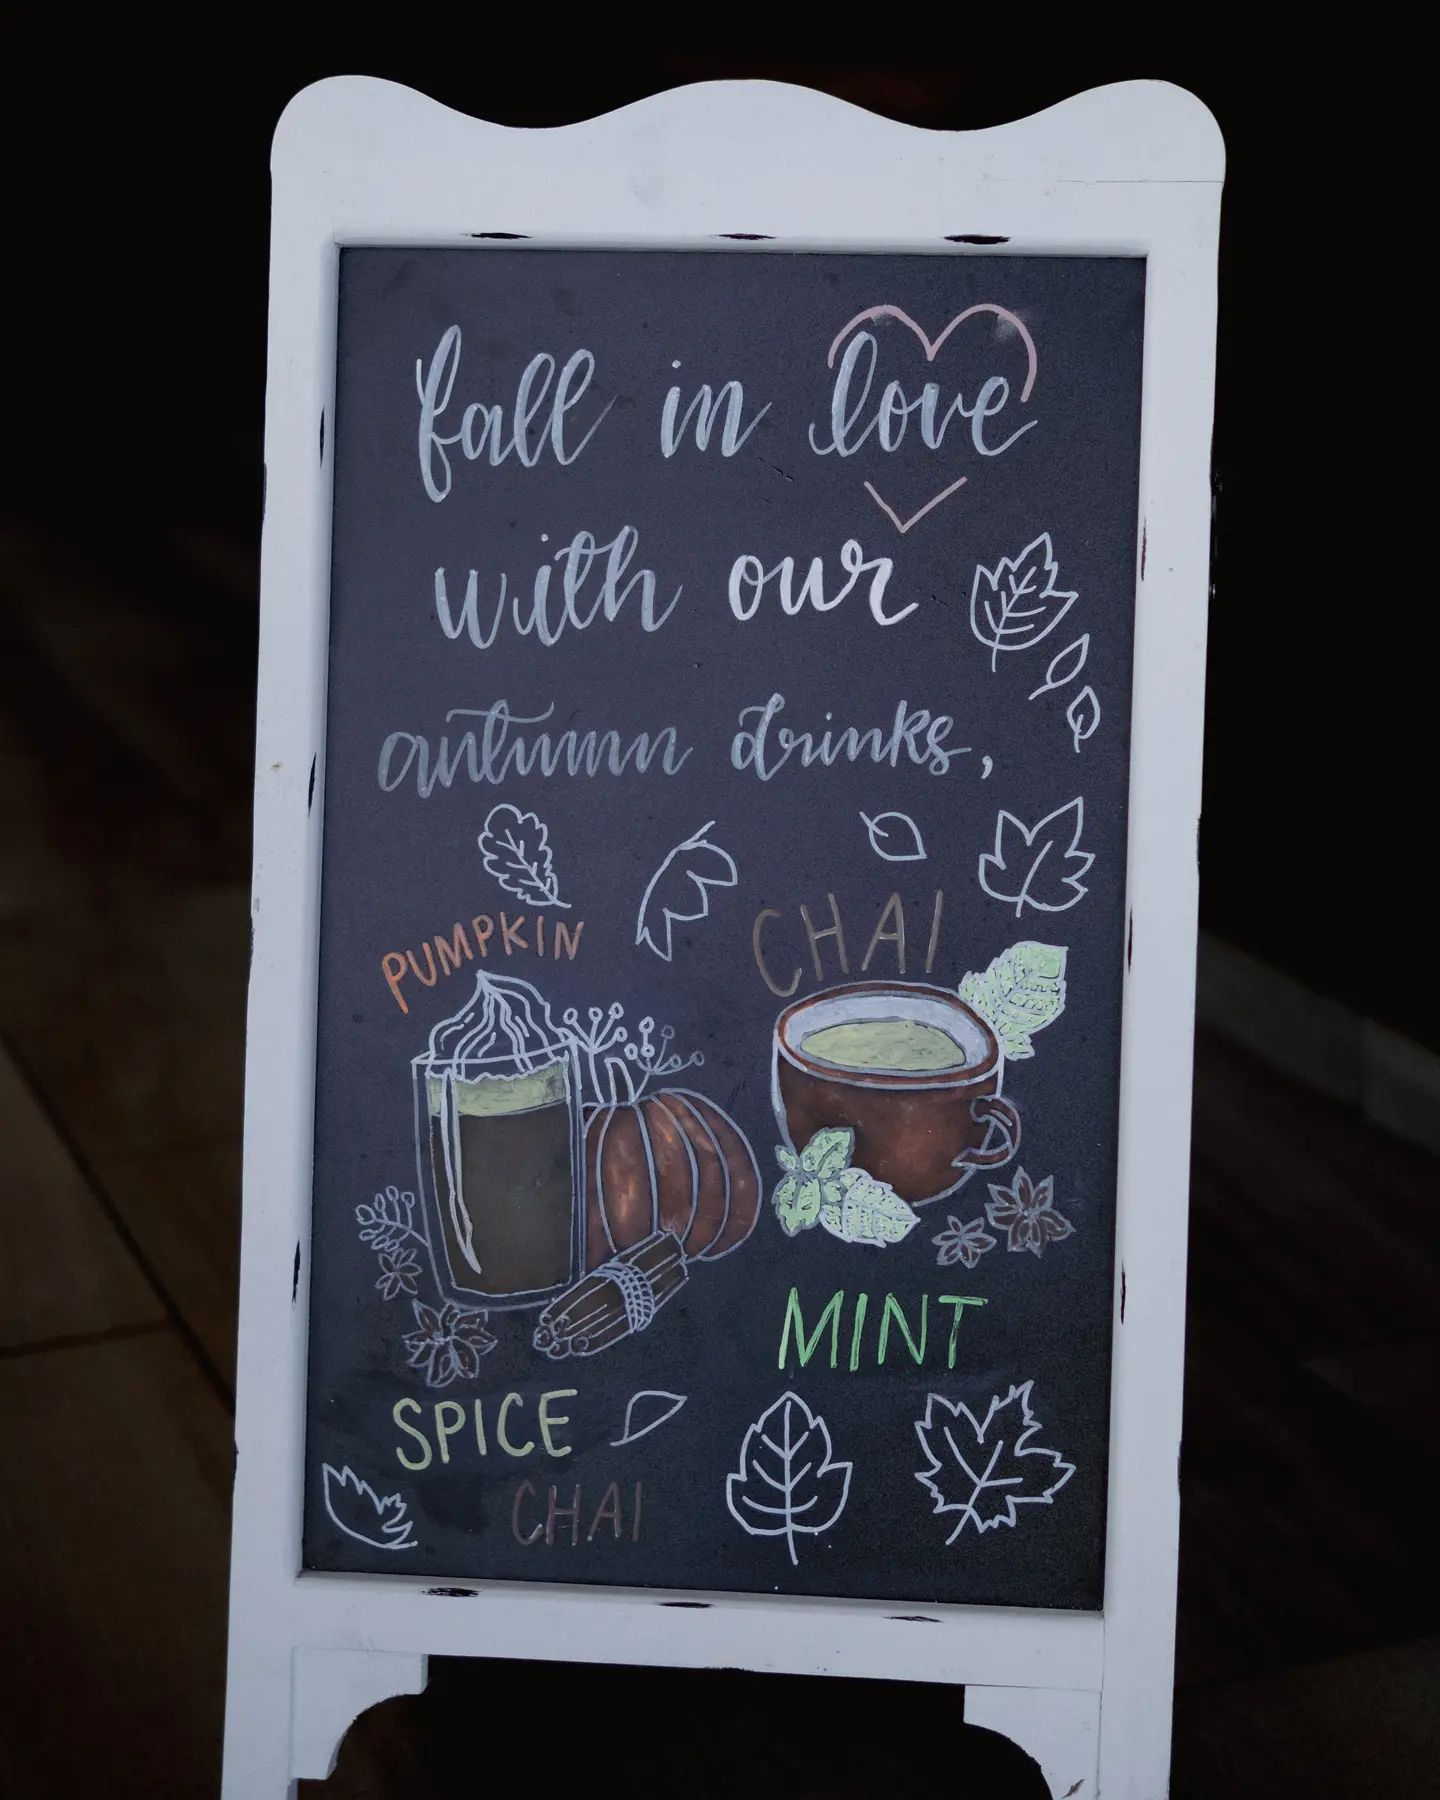 fall in love
with our
autumn drinks,
PUMPKIN
SPICE
CHAI
CHAI
MINT